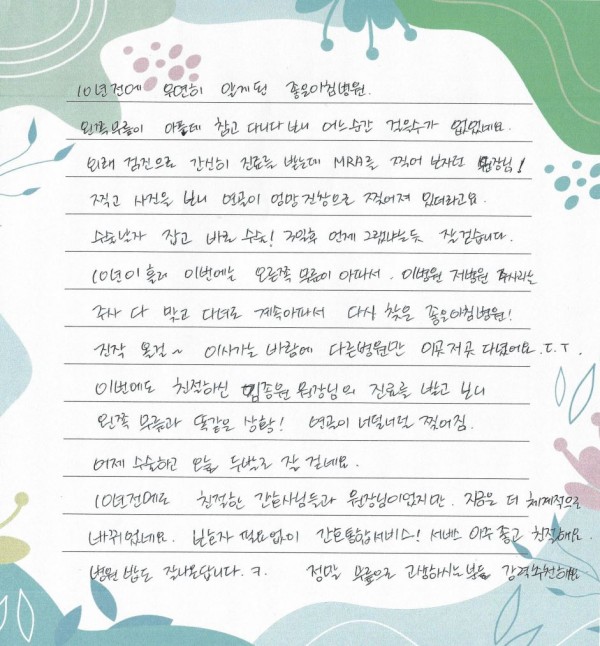 10년전에 우연히 알게된 좋은아침병원.
왼쪽무릎이 아픈데 참고 다니다 보니 어느순간 걸을수가 없었네요.
외래 검진으로 간신히 진료를 받는데 MRA를 찍어 보자던 원장님!
찍고 사진을 보니 연골이 엉망진창으로 찢어져 있더라고요.
수술날자 잡고 바로 수술! 3일후 언제 그랬냐는듯 잘걷습니다.
10년이 흘러 이번에는 오른쪽 무릎이 아파서. 이병원 저병원 주사라는
주사 다 맞고 다녀도 계속아파서 다시 찾은 좋은아침병원!
진작 올걸~ 이사가는 바람에 다른병원만 이곳저곳 다녔어요.ㄷ.ㄷ.
이번에도 친절하신 김종원 원장님의 진료를 받고 보니
왼쪽 무릎과 똑같은 상황! 연골이 너덜너덜 찢어짐.
어제 수술하고 오늘 두발로 잘 걷네요.
10년전에도 친절한 간호사님들과 원장님이었지만. 지금은 더 체계적으로
바뀌었네요. 보호자 필요없이 간호통합서비스! 서비스 아주 좋고 친절해요.
병원 밥도 잘나온답니다.ㅋ. 정말 무릎으로 고생하시는 분들 강력추천해요